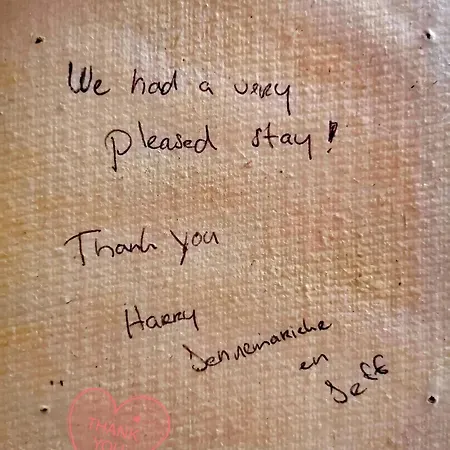 We had a very
pleased stay!
Thank you
Harry
Jennemarieke
en
Jeff
THANK
YOU